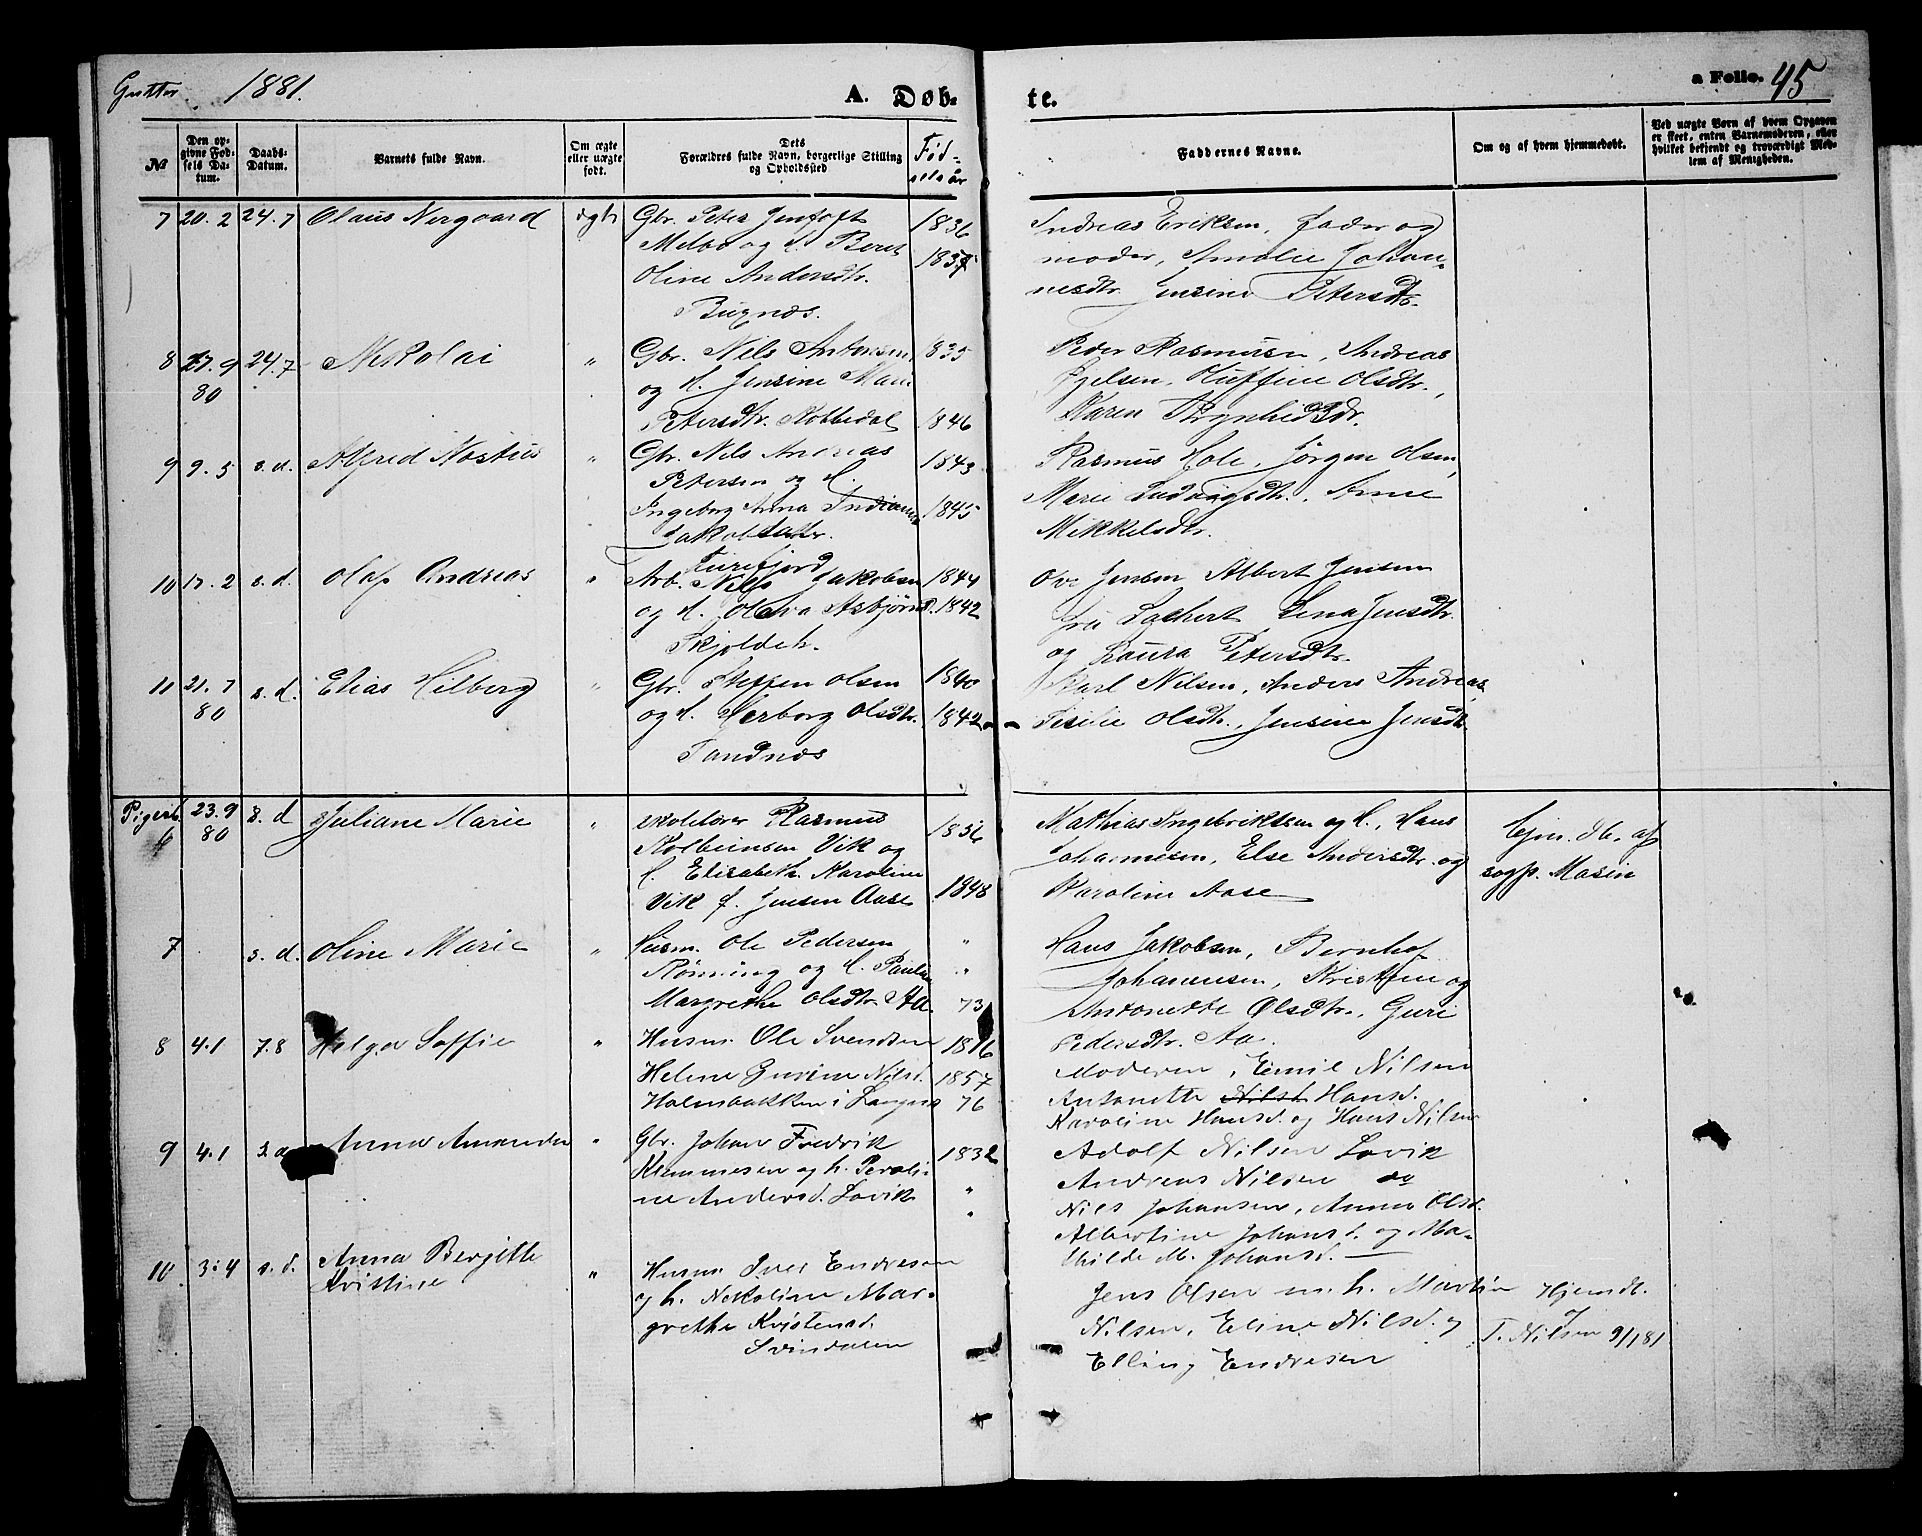 Gutter 1881.
A. Døb-
te.
a Folio. 45
№
Den op-
givne Fød-
sels Da-
tum.
Daabs-
Datum.
Barnets fulde Navn.
Om ægte
eller uægte
født.
Dets
Forældres fulde Navn, borgerlige Stilling
og Opholdssted
Fød-
selsår
Faddernes Navne.
Om og af hvem hjemmedøbt.
Ved uægte Børn af hvem Opgaven
er skeet, enten Barnemoderen, eller
hvilket bekjendt og troværdigt Med-
lem af Menigheden.
7 20.2 24.7 Olaus Norgaard ægte Gbr. Peter Jentoft 1836
Melbo og H. Beret
Oline Andersdtr.
Bugnæs.
Andreas Eriksen, fader og
moder, Amalie Johan-
nesdtr Jensine Petersdtr.
8 27.9 24.7 Nikolai " Gbr. Nils Antonsen 835
80
og H. Jensine Marie
Petersdtr. Kobbedal 1846
Peder Rasmusen, Andreas
Olsdtr.,
Karen
9 9.5 s.d. Alfred " Gbr. Nils Andreas 1843
Petersen og H.
Ingeborg Anna 1845
Jakobsdatter
Turefjord
Rasmus Hole, Jørgen Olsen,
Marie Ludvigsdtr. Anne
Mikkelsdtr.
10 17.2 s.d. Olaf Andreas " Arb. Nils Jakobsen 1844
og H. Olava Asbjørnd. 1842
Skjoldeh.
Ove Jensen Albert Jensen
fru Lena Jensdtr.
og Laura Petersdtr.
11 21.7 s.d. Elias Hilberg " Gbr. Steffen Olsen 1840
80
og H. Herborg Olsdtr. 1842
Sandnæs
Karl Nilsen, Anders Andreas
Olsdtr., Jensine Jensdtr.
Pigerb.
6 23.9 s.d Juliane Marie " skolelærer Rasmus 1856
80
Kolbeinsen Vik og
H. Elisabeth Karoline
Vik f. Jensen Aase 1848
Mathias Ingebriktsen og H., Hans
Johannesen, Else Andersdtr. og
Karoline Aase
hjm. db. af
sogp. Masin
7 s.d. Oline Marie " Husm. Ole Pedersen "
Rønning og H. "
Margrethe Olsdtr. Aa. 73
Hans Jakobsen, Bernhof
Johannesen, Kristine og
Antonette Olsdtr., Guri
Pedersdtr. Aa.
8 4.1 7.8 Helga Soffie " Husm. Ole Svendsen
Helene Gurine Nilsd. 1857
Holmbakken i Langnes 76
Moderen, Emil Nilsen
Antonette Nilsd Hansd.
Karoline Hansd. og Hans Nilsen
9 4.1 s.d Anna Amanda " Gbr. Johan Fredrik 1832
Klemmesen og h. Peroli- "
ne Andersd. Lovik "
Adolf Nilsen Lovik
Andreas Nilsen do
Nils Johansen, Anna Olsd.
Albertine Johansd. og Ma-
thilde M. Johansd.
10 3.4 s.d. Anna Bergitte
Kristine " Husm. Iver Endresen
og h. Nikoline Mar-
grethe Kristensd.
Svindalen
Jens Olsen m. h. Martin
Nilsen, Eline Nilsd. og
Elling Endresen
Hjemdt.
T. Nilsen 9/1 81